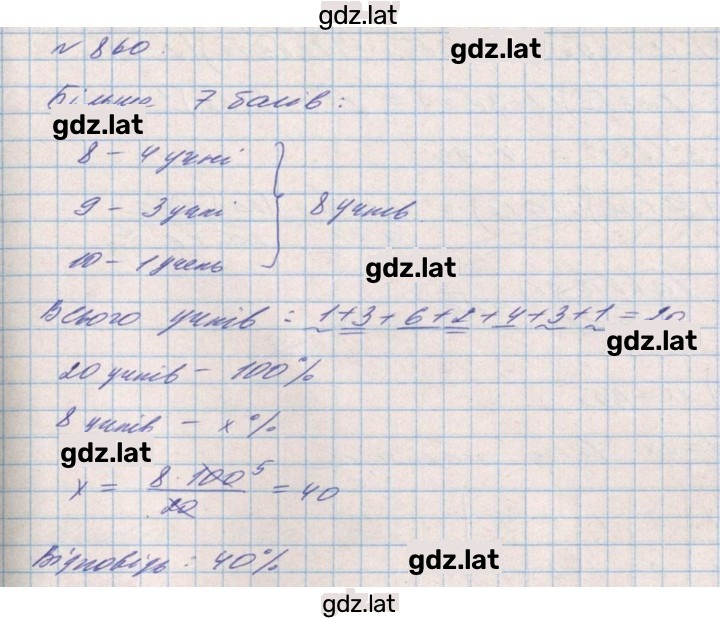 gdz.lat
№ 860.
gdz.lat
Більше 7 балів:
gdz.lat
8 - 4 учні
9 - 3 учні } 8 учнів
10 - 1 учень
gdz.lat
Всього учнів: 1+3+6+2+4+3+1=20
gdz.lat
20 учнів - 100%
8 учнів - x%
gdz.lat
x = 8·100⁵/20 = 40
Відповідь: 40%
gdz.lat
gdz.lat